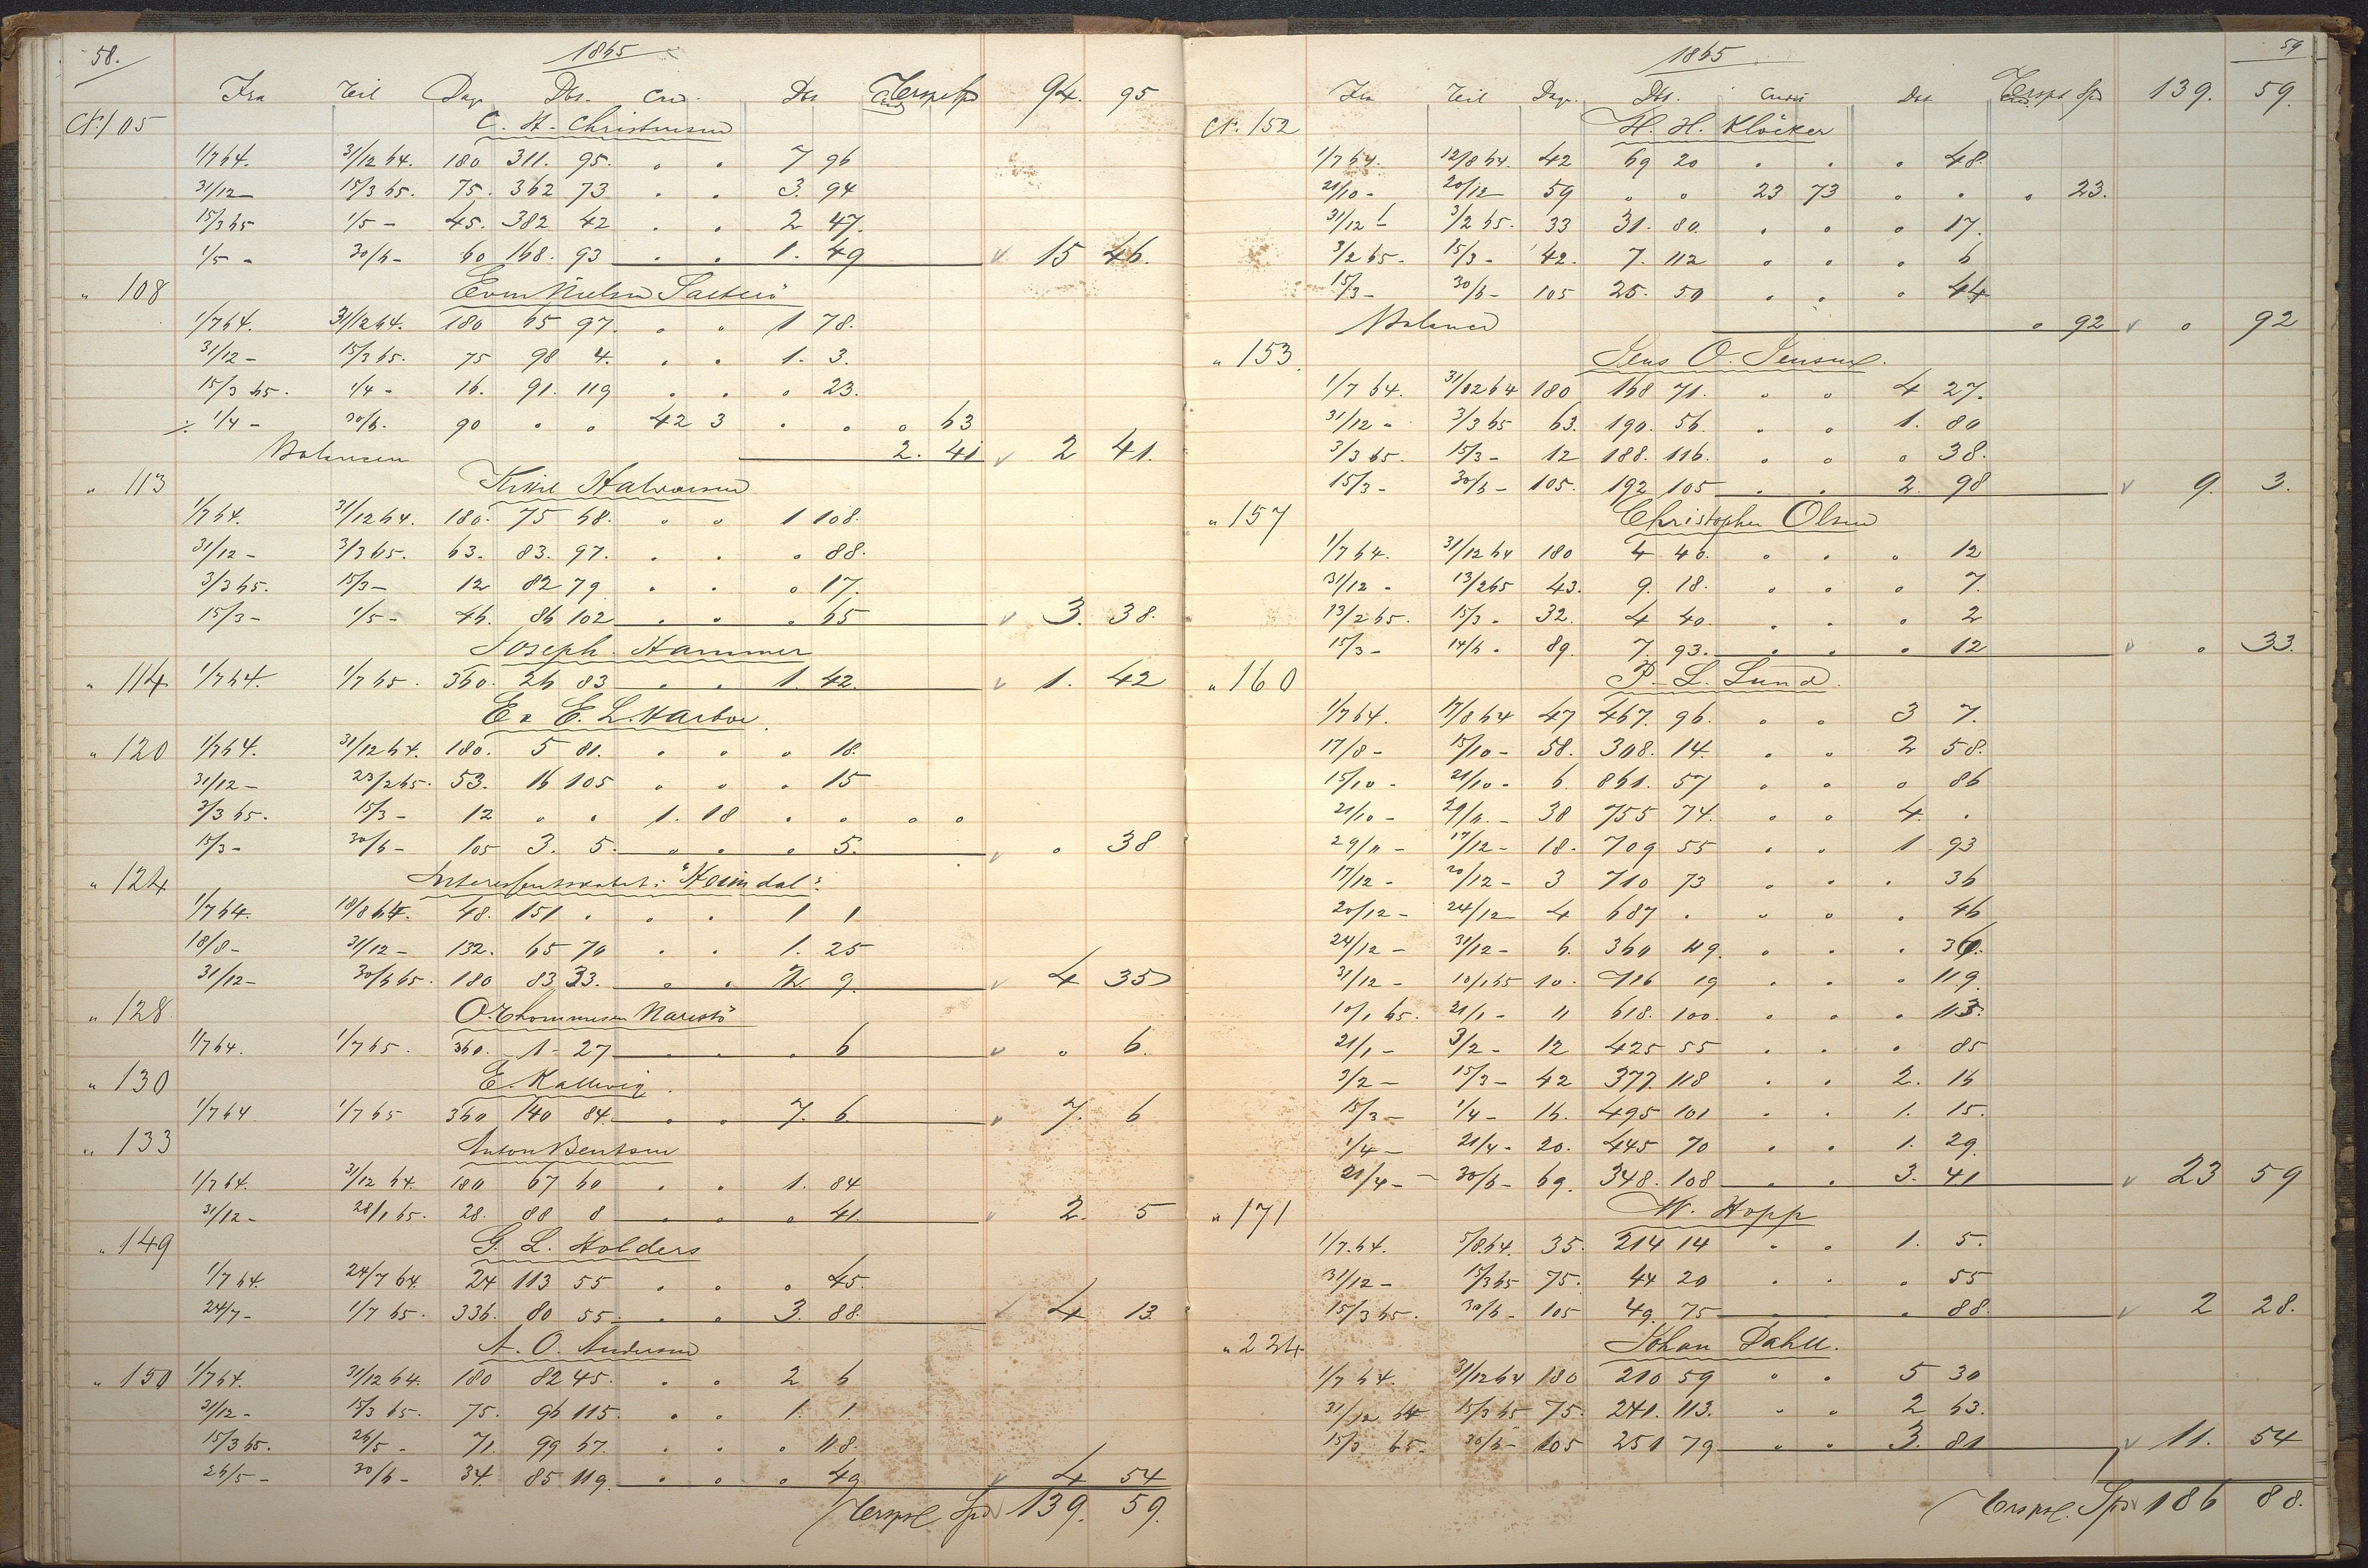 58.
1865
Fra Til Dage Dbt. Cred. Dbt Cred 94. 95
N. 105 C. H. Christensen
1/7 64. 31/12 64. 180 311. 95. " " 7 96
31/12 – 15/3 65. 75. 362 73 " " 3. 94
15/3 65 1/5 – 45. 382 42 " " 2 47.
1/5 – 30/6 – 60 168. 93 " " 1. 49 15 46.
" 108 Even Nielsen
1/7 64. 31/12 64. 180 65 97. " " 1 78.
31/12 – 15/3 65. 75 98 4. " " 1. 3.
15/3 65. 1/4 – 16. 91. 119 " " " 23.
÷ 1/4 – 30/6. 90 " " 42 3 " " " 63
Balancen 2. 41 2 41.
" 113 Halvorsen
1/7 64. 31/12 64. 180. 75 68. " " 1 108.
31/12 – 3/3 65. 63. 83. 97. " " " 88.
3/3 65. 15/3 – 12 82 79 " " " 17.
15/3 – 1/5 – 46. 86 102 " " " 65 3. 38.
Joseph Hammer
" 114 1/7 64. 1/7 65. 360. 26 83 " " 1. 42. 1. 42
E. L. Harboe
" 120 1/7 64. 31/12 64. 180. 5 81. " " " 18.
31/12 – 23/2 65. 53. 16 105 " " " 15
3/3 65. 15/3 – 12 " " 1. 18 " " " "
15/3 – 30/6 – 105 3. 5. " " " 5. " 38
" 124 Interessentskabet: "Heimdal".
1/7 64. 18/8 64. 48. 151 " " " 1 1
18/8 – 31/12 – 132. 65 70 " " 1. 25
31/12 – 30/6 65. 180 83 33. " " 2 9. 4 35
" 128 O. Thommesen Narestö
1/7 64. 1/7 65. 360. 1 – 27 " " " 6 " 6.
" 130 E. Kallevig.
1/7 64 1/7 65 360 140 84. " " 7. 6. 7. 6
" 133 Anton Bentsen
1/7 64. 31/12 64. 180 67 60 " " 1. 84
31/12 – 28/1 65. 28. 88 8 " " " 41. 2. 5
" 149 G. L. Holders
1/7 64. 24/7 64. 24 113 55 " " " 45.
24/7 – 1/7 65. 336. 80 55. " " 3. 88. 4 13.
A. O. Andersen
" 150 1/7 64. 31/12 64. 180 82 45. " " 2 6
31/12 – 15/3 65. 75. 96 115. " " 1. 1.
15/3 65. 26/5 – 71. 99 67. " " " 118.
26/5 – 30/6 – 34. 85 119. " " " 49 4 54
Spd 139. 59.
59
1865
Fra Til Dage. Dbt. Credit Dbt Cred 139. 59.
N. 152 H. H. Klöcker
1/7 64. 12/8 64. 42 69 20 " " " 48.
21/10 – 20/12 – 59 " " 23 73 " " " 23.
31/12 – 3/2 65. 33 31. 80. " " " 17.
3/2 65. 15/3 – 42. 7. 112 " " " 6
15/3 – 30/6 – 105 25. 50 " " " 44
Balance " 92 " 92
" 153. Jens O. Jensen.
1/7 64. 31/12 64 180 168 71. " " 4 27.
31/12 – 3/3 65 63. 190. 56. " " 1. 80
3/3 65. 15/3 – 12 188. 116. " " " 38.
15/3 – 30/6 – 105. 192 105 " " 2. 98 9. 3.
" 157 Christopher Olsen
1/7 64. 31/12 64 180 4 46. " " " 12
31/12 – 13/2 65 43. 9. 18. " " " 7.
13/2 65. 15/3 – 32. 4 40. " " " 2
15/3 – 14/6 – 89. 7. 93. " " " 12 " 33.
" 160 P. L. Lund.
1/7 64. 17/8 64 47 467. 96. " " 3 7.
17/8 – 15/10 – 58. 308. 14. " " 2 58.
15/10 – 21/10 – 6. 861. 57 " " " 86
21/10 – 29/11 – 38 755 74. " " 4 "
29/11 – 17/12 – 18. 709 55 " " 1 93
17/12 – 20/12 – 3 710 73 " " " 36
20/12 – 24/12 – 4 687 " " " " 46
24/12 – 31/12 – 6. 360 49. " " " 36.
31/12 – 10/1 65 10. 716 19 " " " 119.
10/1 65. 21/1 – 11 618. 100. " " " 113.
21/1 – 3/2 – 12 425 55 " " " 85
3/2 – 15/3 – 42 377. 118 " " 2. 16
15/3 – 1/4 – 16. 495 101 " " 1. 15.
1/4 – 21/4 – 20. 445 70 " " 1. 29.
21/4 – 30/6 – 69. 348. 108 " " 3. 41 23 59
" 171 W. Hopp
1/7. 64. 5/8. 64. 35. 214 14 " " 1. 5.
31/12 – 15/3 65 75. 44 20 " " " 55
15/3 65. 30/6 – 105 49. 75 " 88. 2 28.
" 224 Johan Dahll.
1/7 64. 31/12 64 180 210 59 " " 5 30
31/12 64 15/3 65 75. 241. 113. " " 2 63.
15/3 65. 30/6 – 105 251 79 " " 3. 81 11. 54
Spd 186 88.